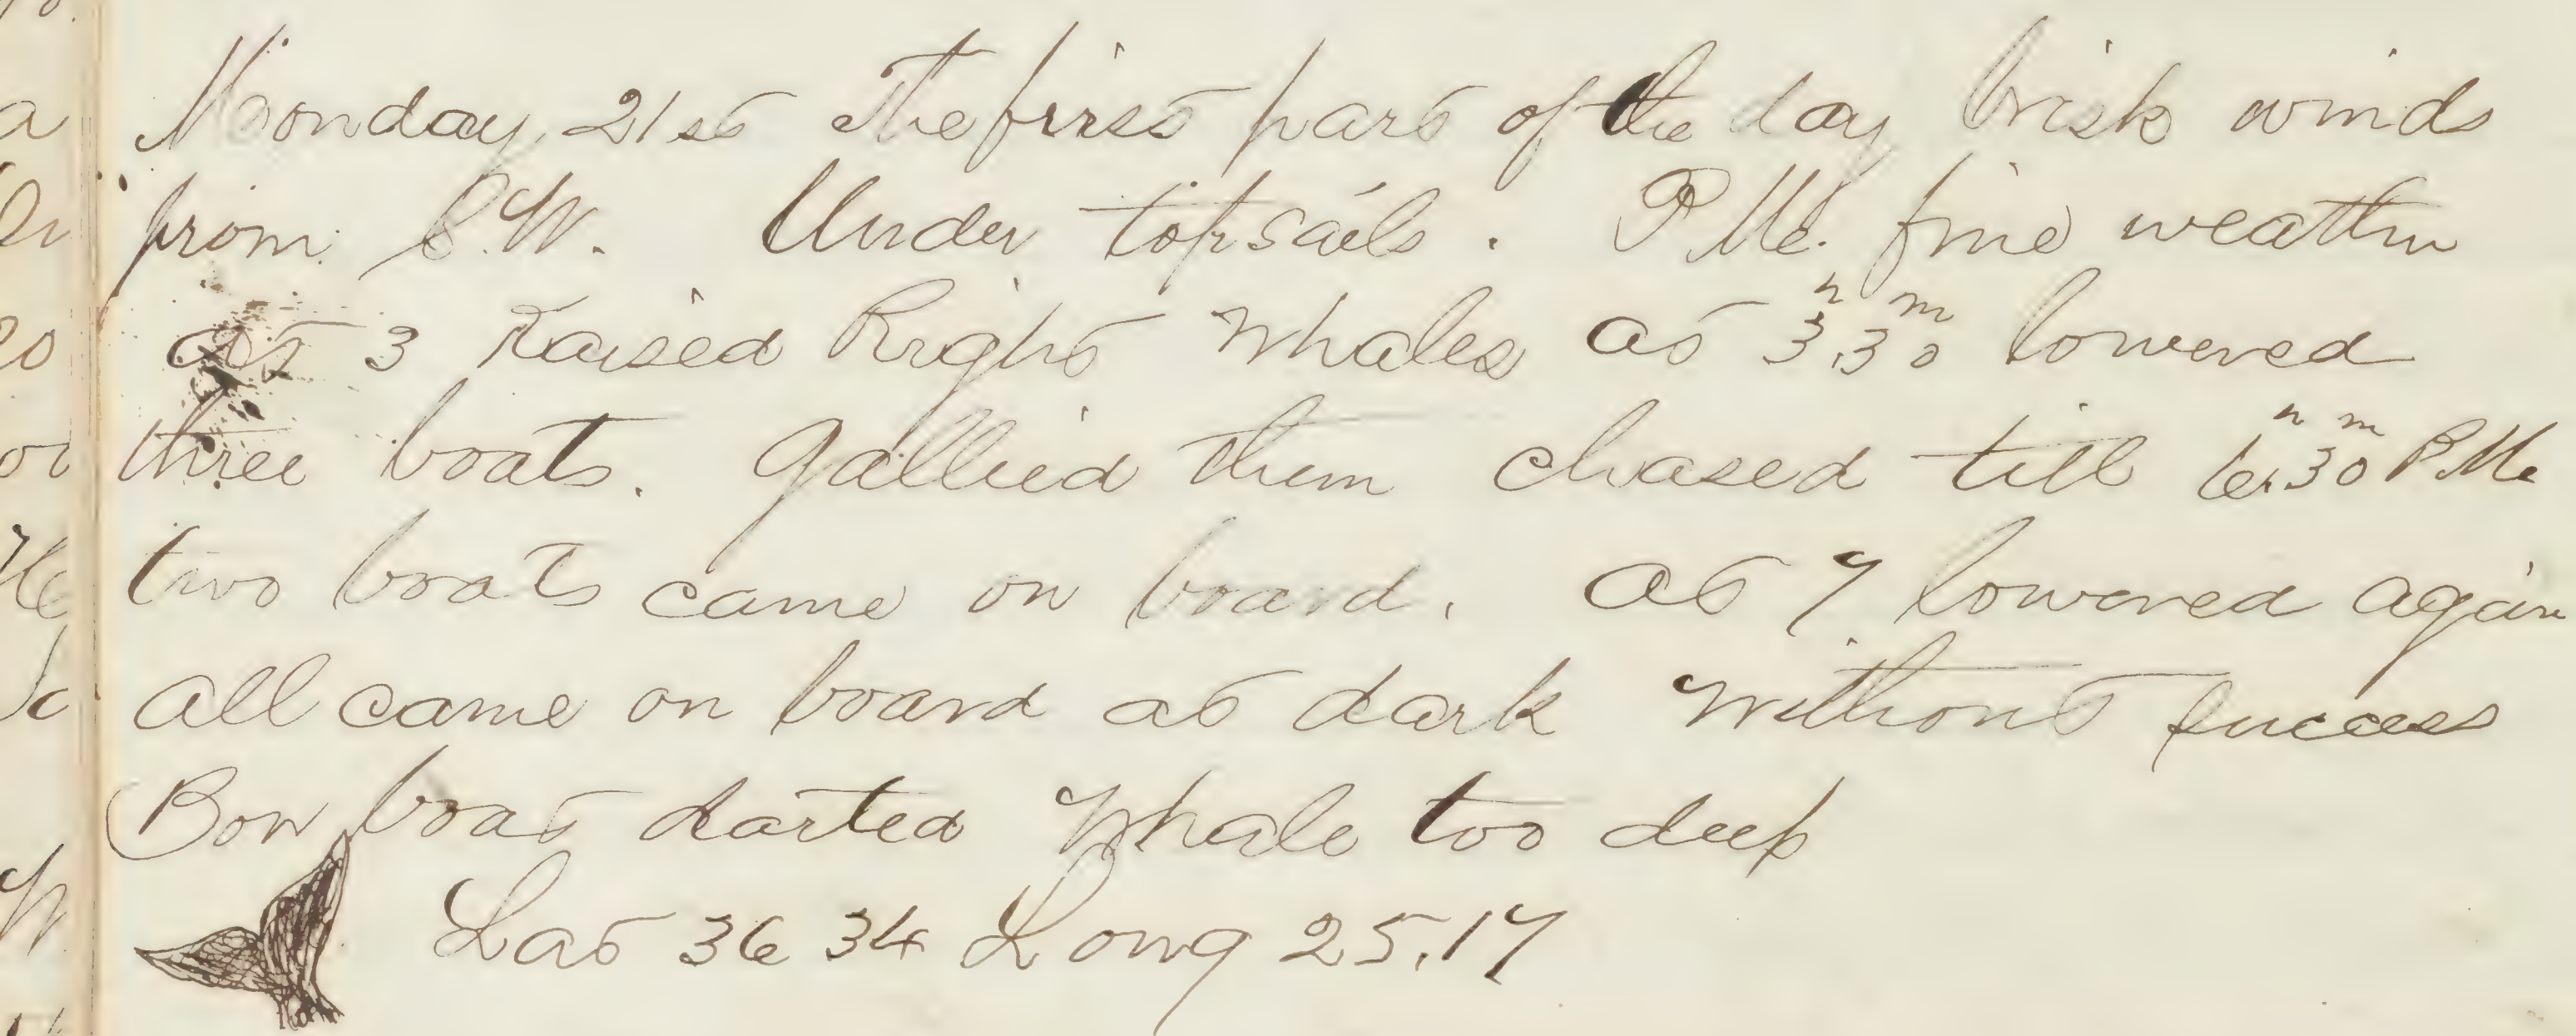 Monday 21st The first part of the day brisk winds
from S.W. Under topsails. P.M. fine weather
at 3 Raised Right whales at 3.h 30 m lowered
three boats. gallied them chased till 6h.30m P.M.
two boats came on board. at 7 lowered again
all came on board at dark without success
Bow boat darted whale too deep
Lat 36 34 Long 25.17